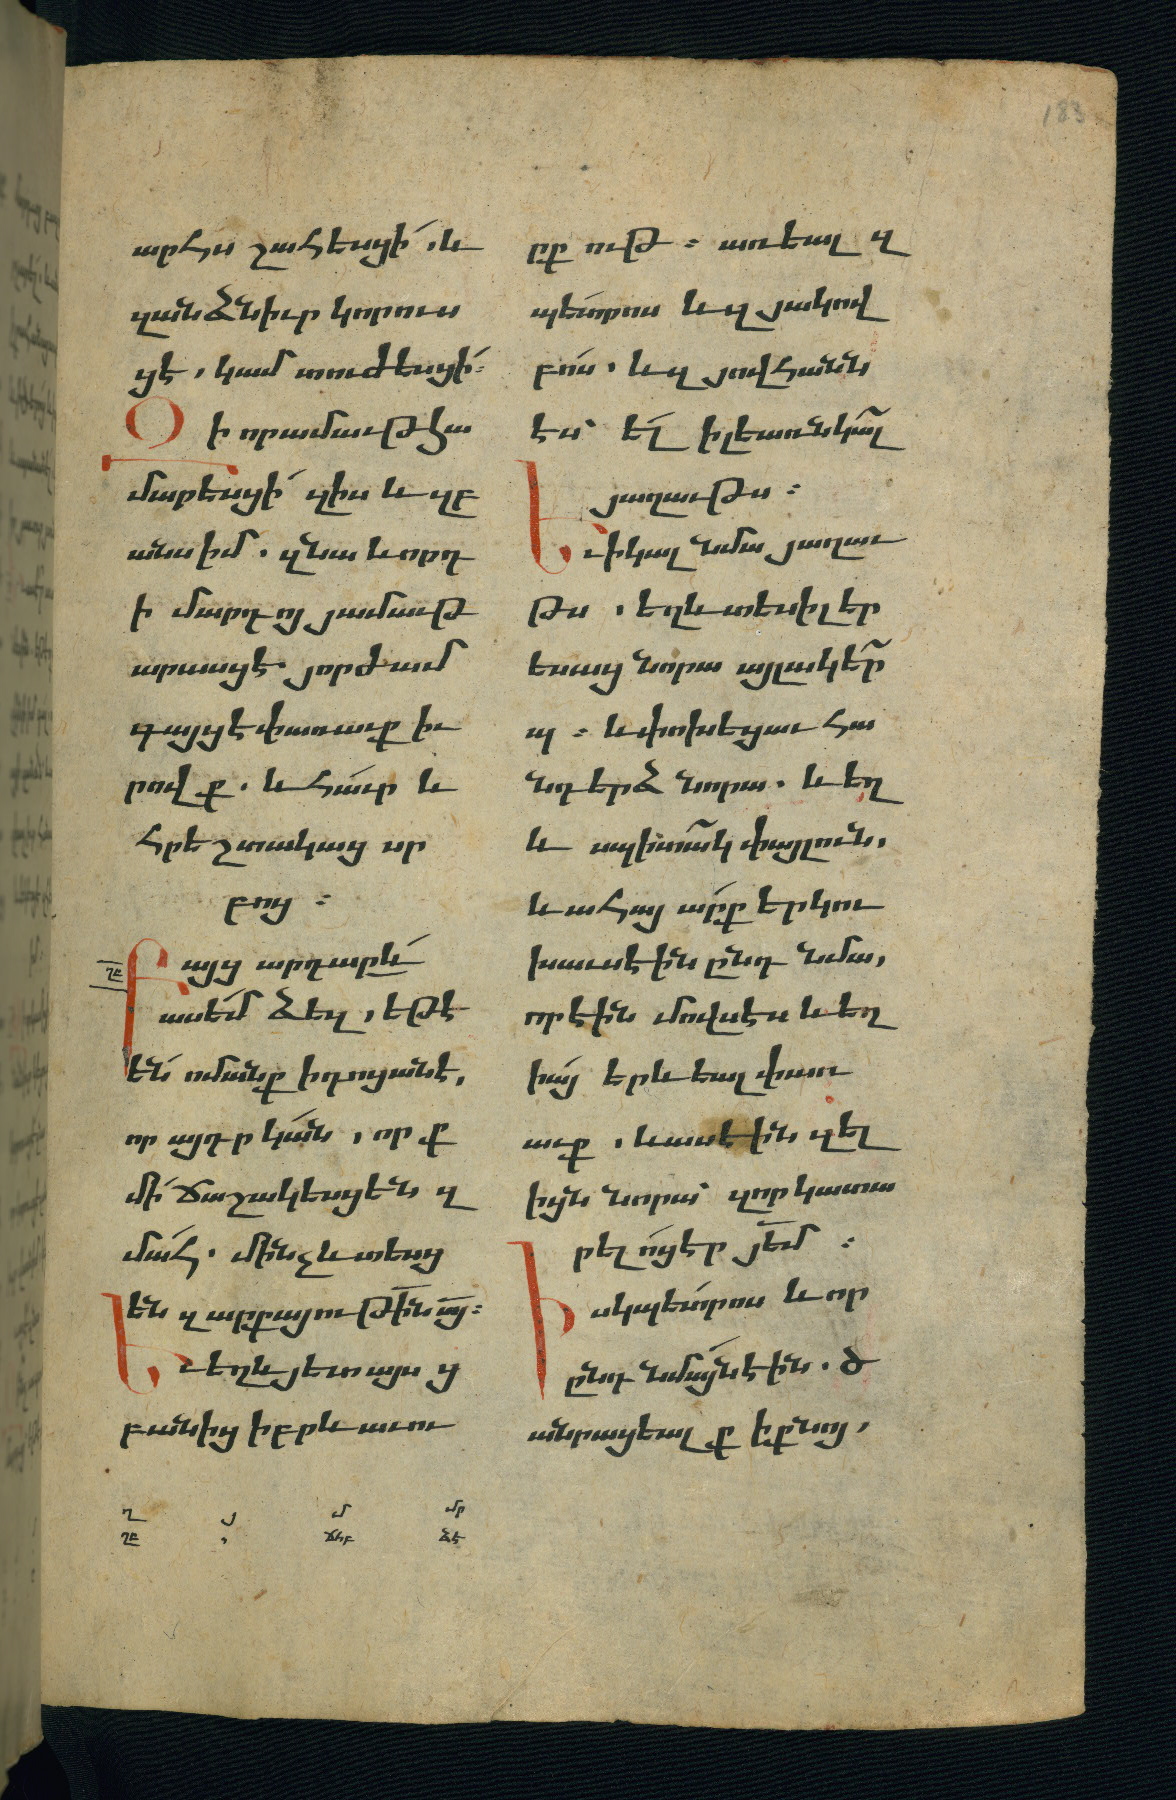 183
արհս շահեսցի՛, և
զանձնիւր կորուս
ցէ, կամ տուժեսցի՛։
Զի որ ամաւթ հա
մարեսցի՛ զիս և զբ
անս իմ. զնա և որդ
ի մարդոյ յամաւթ
արասցէ. յորժամ
գայցէ փառաւք իւ
րովք. և հա՛ւր և
հրեշտակաց սր
բոց ։
ղբ
Բայց արդարև՛
ասեմ ձեզ, եթէ
են՛ ոմանք ի դոցանէ,
որ այդր կան, որք
մի՛ ճաշակեսցեն զ
մահ. մինչև տեսց
են զարքայութին այ։
Եւ եղև յետ այս ց
բանից իբրև աւու
րք ութ ։ առեալ զ
պետրոս և զյակով
բոս. և զյովհաննէ
ս՝ ել ի լեառն կալ
յաղաւթս ։
Եւ ի կալ նմա յաղաւ
թս, եղև տեսիլ եր
եսաց նորա այլակեր
պ ։ և փոխեցաւ հա
նդերձ նորա. և եղ
և սպիտակ փայլուն,
և ահա՛ արք երկու
խաւսէին ընդ նմա,
որ էին մովսէս և եղ
իա՛ երևեալ փառ
աւք, և ասէին զել
իցն նորա՝ զոր կատա
րել ո՛ցէր յեմ ։
Իսկ պետրոս և որ
ընդ նմայն էին. ծ
անրացեալ ք ի քնոյ,
ղ յ մ մր
ղբ , ճհբ ձէ